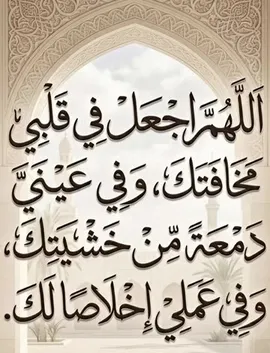 اَللَّهُمَّ اجْعَلْ فِي قَلْبِي
مَخَافَتَكَ، وَفِي عَيْنَيَّ
دَمْعَةً مِّنْ خَشْيَتِكَ،
وَفِي عَمَلِيْ إِخْلَاصًا لَكَ.